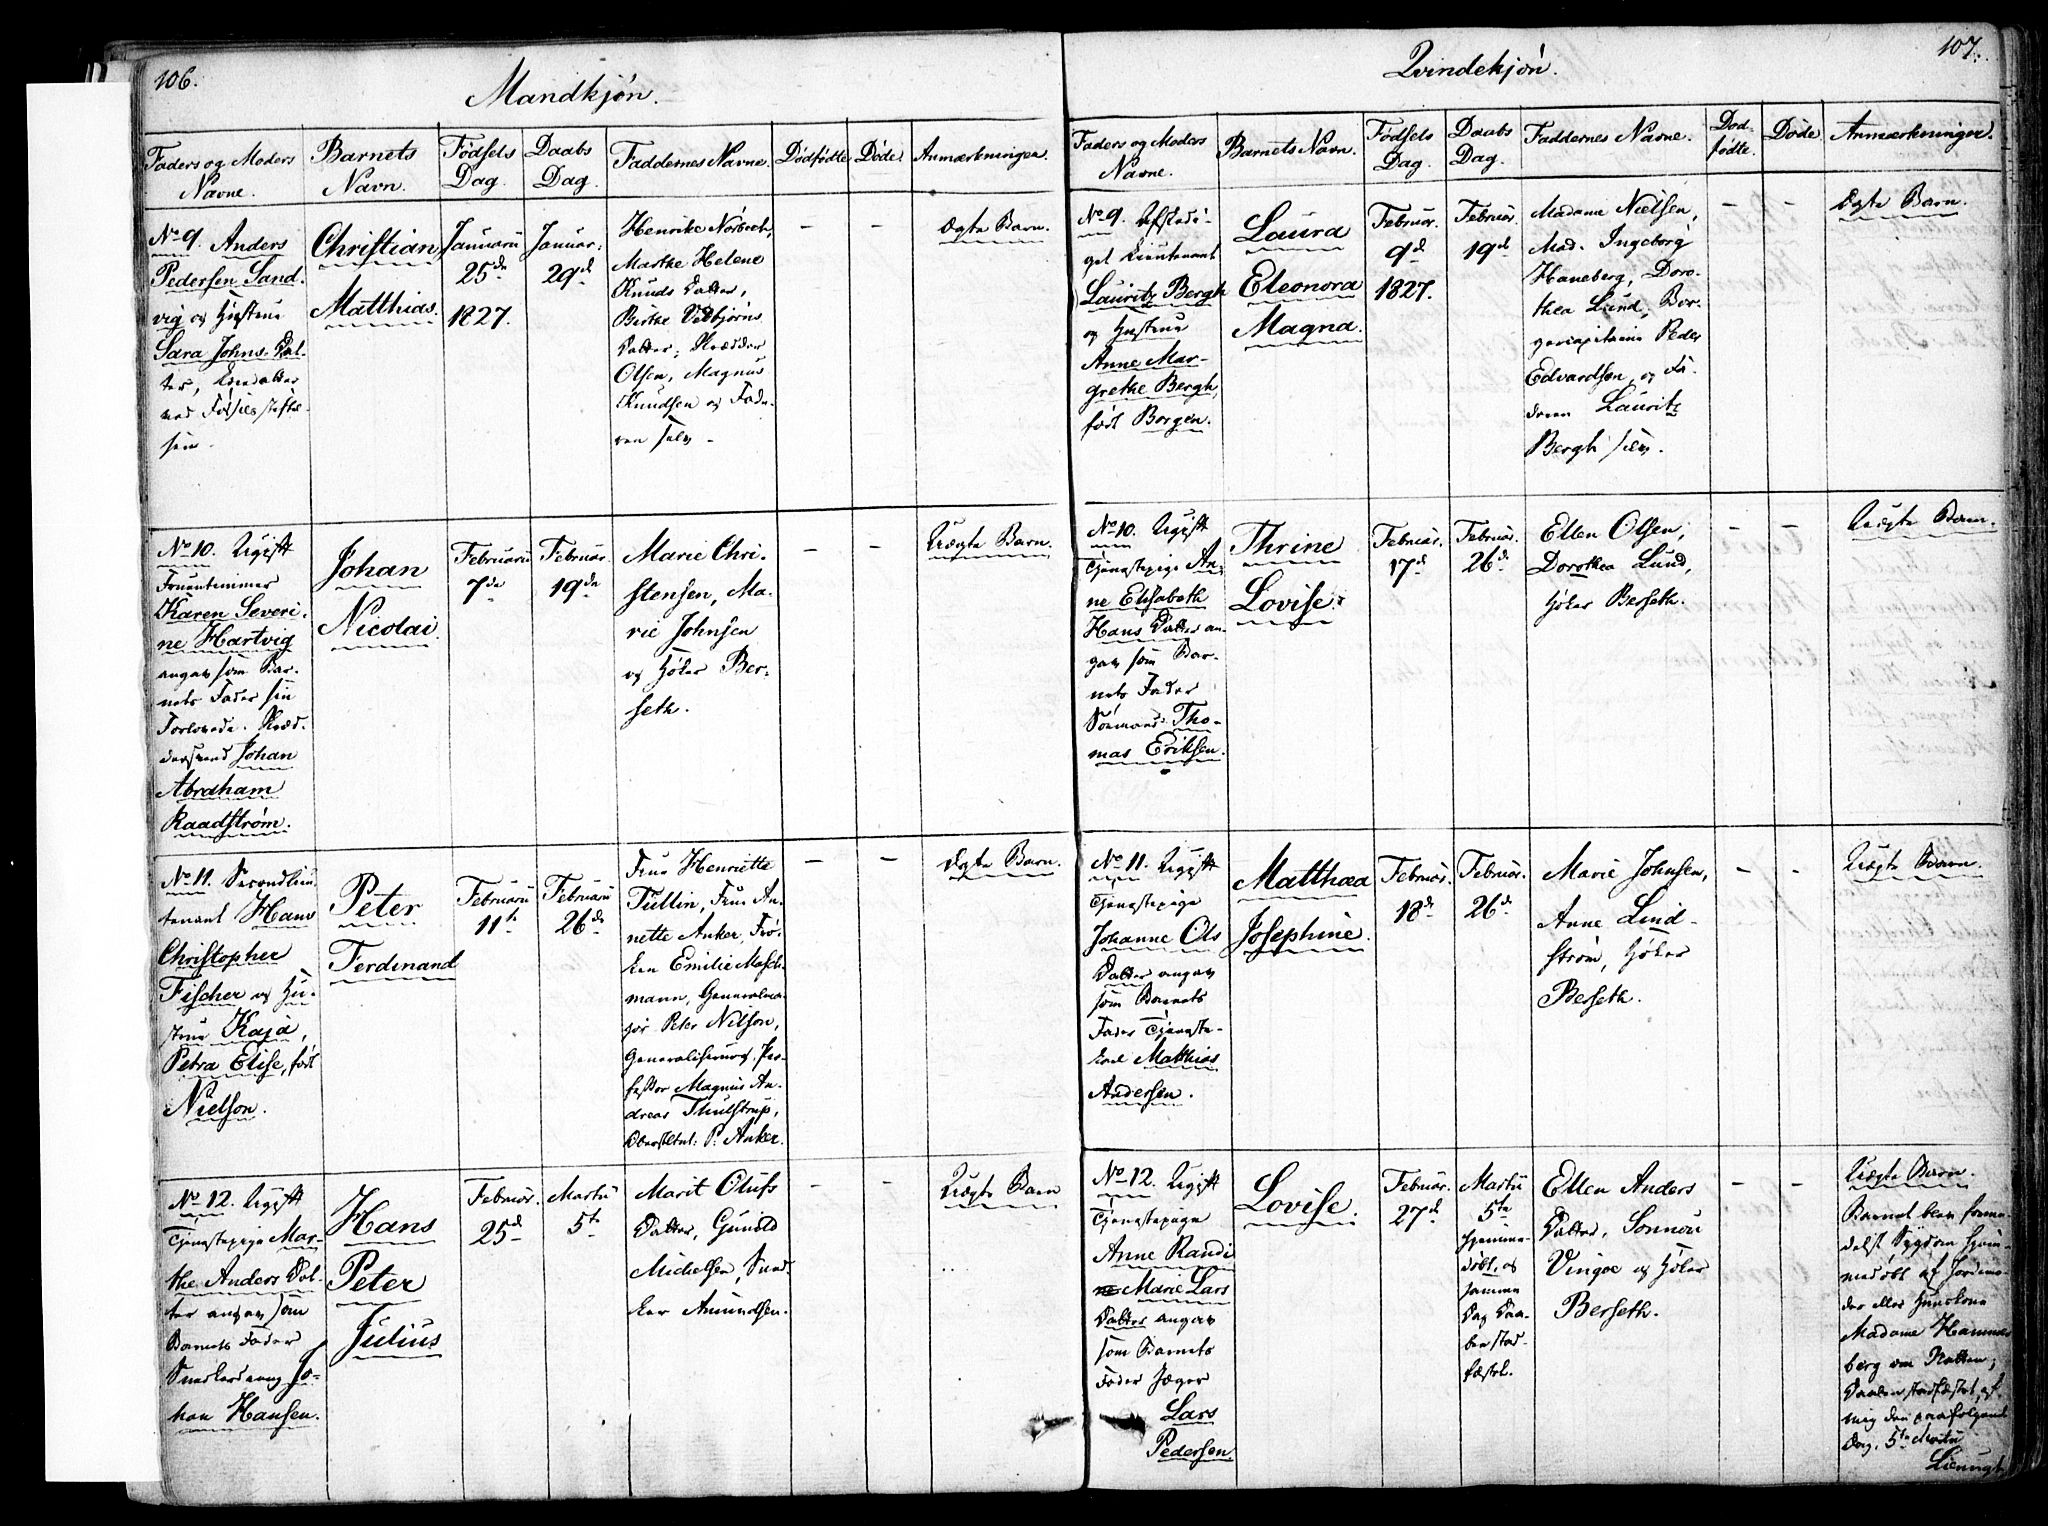 106.
Mandkjøn.
Faders og Moders
Navne.
Barnets
Navn.
Fødsels
Dag.
Daabs
Dag.
Faddernes Navne.
Dødfødte
Døde.
Anmærkninger.
No 9. Anders
Pedersen Sand-
vig og Hustrue
Sara Johns Dat-
ter,
sen.
Christian
Matthias.
Januarii
25de
1827.
Januar:
29de
Henrike Nørbech,
Marthe Helene
Knuds Datter,
Berthe Vebjørns
Datter, Skrædder
Olsen, Magnus
Knudsen og Fade-
ren selv.
– –
Ægte Barn.
No 10. Ugift
Fruentimmer
Karen Severi-
ne Hartvig
angav som Bar-
nets Fader sin
Forlovede Skræd-
dersvend Johan
Abraham
Raadstrøm.
Johan
Nicolai.
Februarii
7de
Februar.
19de
Marie Chri-
stensen, Ma-
rie Johnsen
og Høker Ber-
seth.
– –
Uægte Barn.
No 11. Secondlieu-
tenant Hans
Christopher
Fischer og Hu-
strue Kaja
Petra Elise, født
Nielson.
Peter
Ferdinand
Februarii
11te
Februarii
26de
Frue Henriette
Tullin, Frue An-
nette Anker, Frø-
ken Emilie Masch-
mann, Generalma-
jor Peter Nilson,
Generalchirurg, Pro-
fessor Magnus An-
dreas Thulstrup,
Oberstltnt: P. Anker.
– –
Ægte Barn.
No 12. Ugift
Tjenestepige Mar-
the Anders Dat-
ter angav som
Barnets Fader
Snedkersvend Jo-
han Hansen.
Hans
Peter
Julius
Februar.
25de
Martii
5te
Marit Olufs
Datter, Gunild
Michelsen, Sned-
ker Amundsen.
– –
Uægte Barn
107.
Qvindekjøn.
Faders og Moders
Navne.
Barnets Navn.
Fødsels
Dag.
Daabs
Dag.
Faddernes Navne.
Død-
fødte.
Døde
Anmærkninger.
No 9. Afskedi-
get Lieutenant
Lauritz Bergh
og Hustrue
Anne Mar-
grethe Bergh,
født Borgen.
Laura
Eleonora
Magna.
Februar.
9de
1827.
Februar.
19de
Madame Nielsen,
Mad. Ingeborg
Haneberg, Doro-
thea Lund, Bor-
gercapitaine Peder
Edvardsen og Fa-
deren Lauritz
Bergh selv.
– –
Ægte Barn.
No 10. Ugift
Tjenestepige An-
ne Elisabeth
Hans Datter an-
gav som Bar-
nets Fader
Sømand Tho-
mas Eriksen.
Thrine
Lovise.
Februar.
17de
Februar.
26de
Ellen Olsen,
Dorothea Lund,
Høker Berseth.
– –
Uægte Barn.
No 11. Ugift
Tjenestepige
Johanne Ols
Datter angav
som Barnets
Fader Tjeneste-
karl Matthias
Andersen.
Matthæa
Josephine.
Februar.
18de
Februar.
26de
Marie Johnsen,
Anne Lind-
strøm, Høker
Berseth.
– –
Uægte Barn.
No 12. Ugift
Tjenestepige
Anne Randi
Marie Lars
Datter angav
som Barnets
Fader Jæger
Lars
Pedersen.
Lovise.
Februar.
27de
Martii
5te
Hjemme-
døbt, og
samme
Dag Daa-
ben stad-
fæstet.
Ellen Anders
Datter, Sonnou
Vingoe og Høker
Berseth.
– –
Uægte Barn.
Barnet blev forme-
delst Sygdom hjem-
medøbt af Jordemo-
der eller
Madame Hammer-
berg om Natten,
Daaben stadfæstet af
mig den paafølgende
Dag, 5te Martii